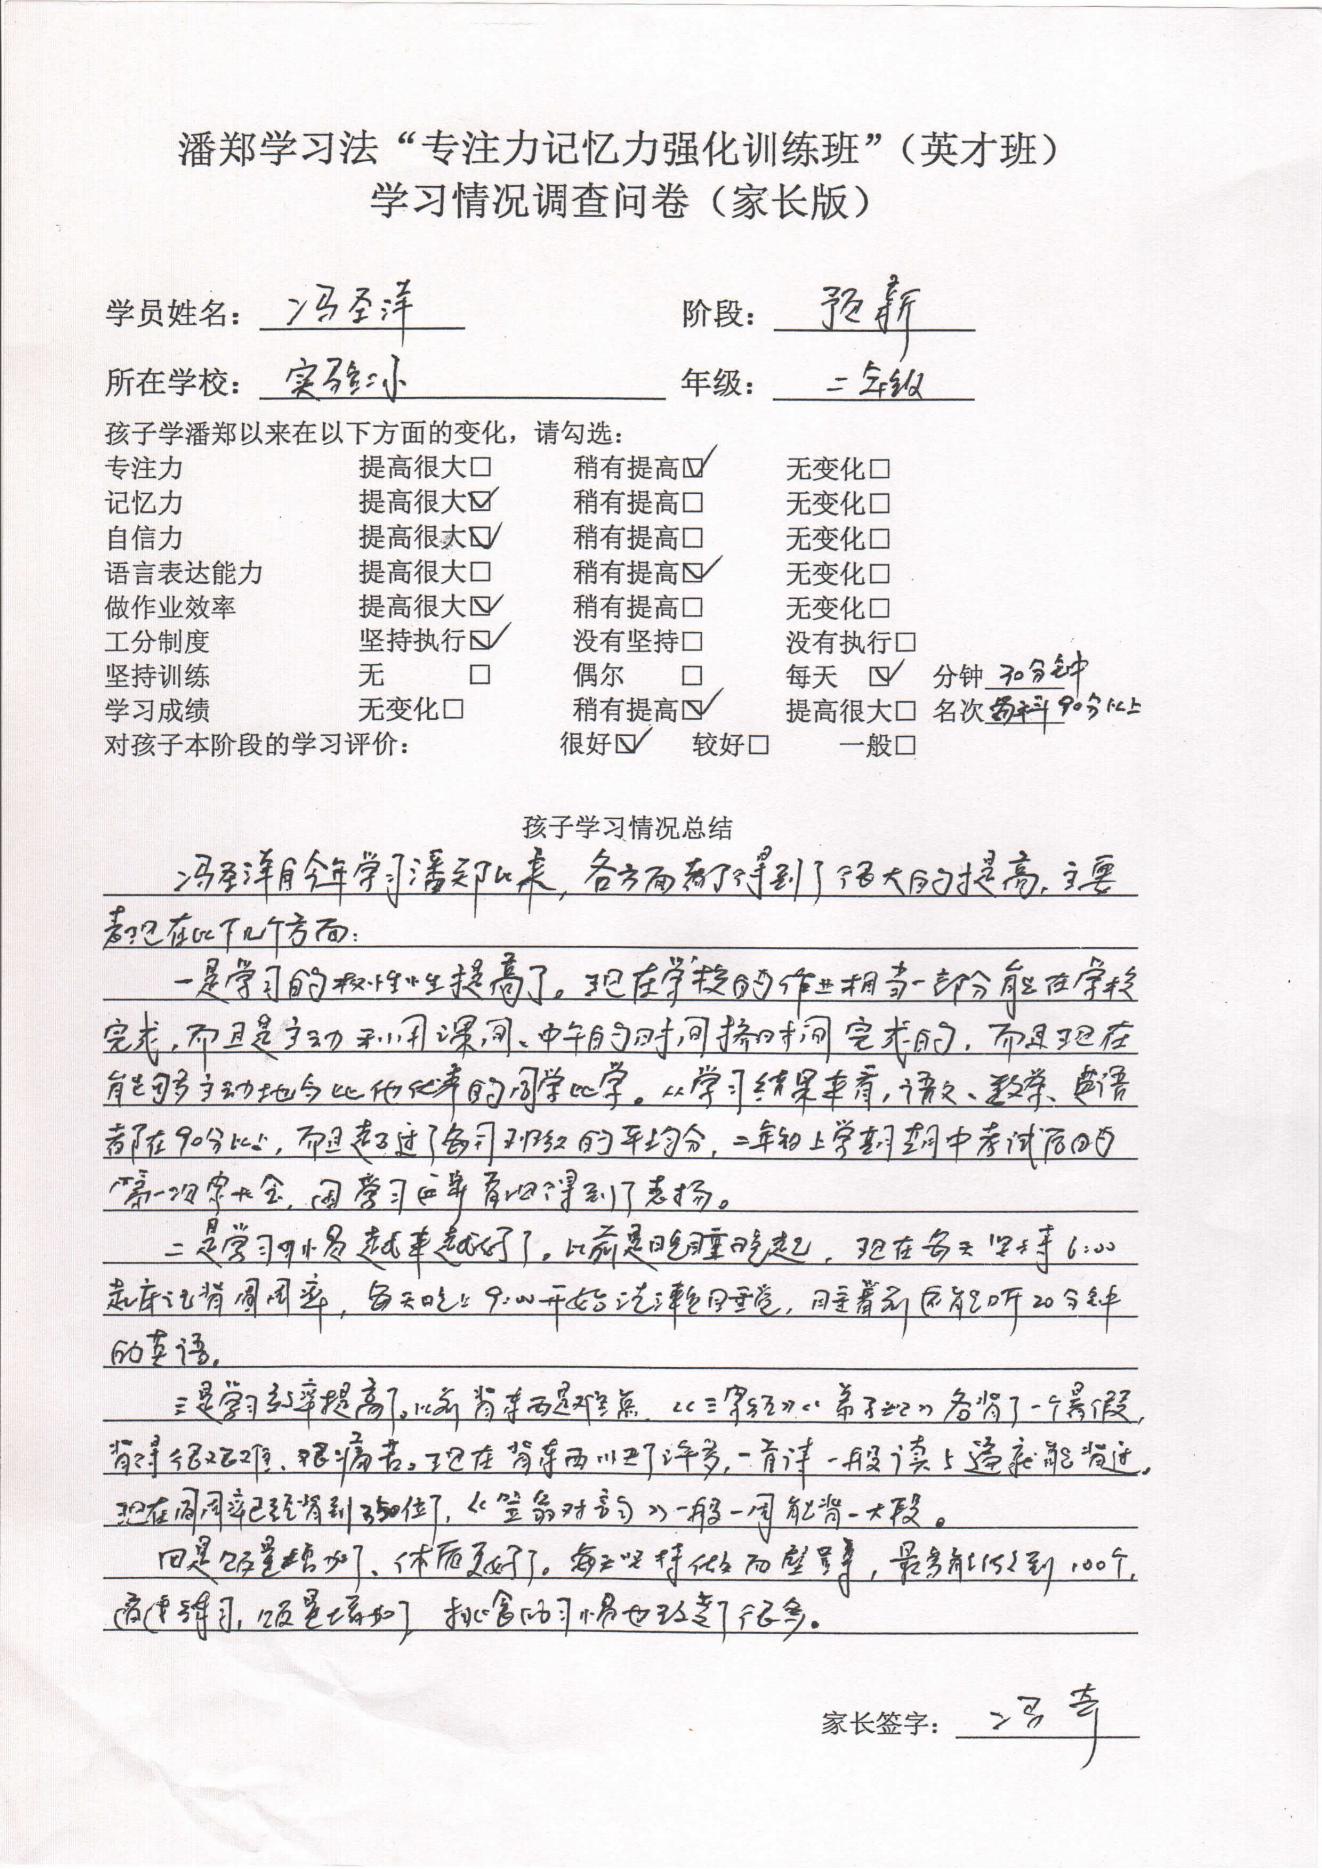 潘郑学习法“专注力记忆力强化训练班”（英才班）
学习情况调查问卷（家长版）
学员姓名： 冯圣洋 阶段： 预新
所在学校： 实验二小 年级： 二年级
孩子学潘郑以来在以下方面的变化，请勾选：
专注力 提高很大□ 稍有提高☑ 无变化□
记忆力 提高很大☑ 稍有提高□ 无变化□
自信力 提高很大☑ 稍有提高□ 无变化□
语言表达能力 提高很大□ 稍有提高☑ 无变化□
做作业效率 提高很大☑ 稍有提高□ 无变化□
工分制度 坚持执行☑ 没有坚持□ 没有执行□
坚持训练 无 □ 偶尔 □ 每天 ☑ 分钟 30分钟
学习成绩 无变化□ 稍有提高☑ 提高很大□ 名次 每科90分以上
对孩子本阶段的学习评价： 很好☑ 较好□ 一般□
孩子学习情况总结
冯圣洋自今年学习潘郑以来，各方面都得到了很大的提高，主要
表现在以下几个方面：
一是学习的积极性提高了。现在学校的作业相当一部分能在学校
完成，而且是主动利用课间、中午的时间挤时间完成的，而且现在
能够主动地与比他优秀的同学比学。从学习结果来看，语文、数学、英语
都在90分以上，而且超过了每司班级的平均分，二年级上学期期中考试后的
第一次家长会，因学习进步有得到了表扬。
二是学习习惯越来越好了。以前是晚睡晚起，现在每天坚持6:00
起床读背圆周率，每天晚上9:00开始洗漱睡觉，睡着前还能听20分钟
的英语。
三是学习效率提高了。以前背东西是难点，《三字经》《弟子规》各背了一个暑假，
背得很艰难、很痛苦。现在背东西快了许多，一首诗一般读5遍就能背过。
现在圆周率已经背到350位了，《笠翁对韵》一般一周能背一大段。
四是饭量增加了、体质更好了。每天坚持做面壁蹲，最多能做到100个，
通过练习，饭量增加了，挑食的习惯也改变了很多。
家长签字： 冯奇